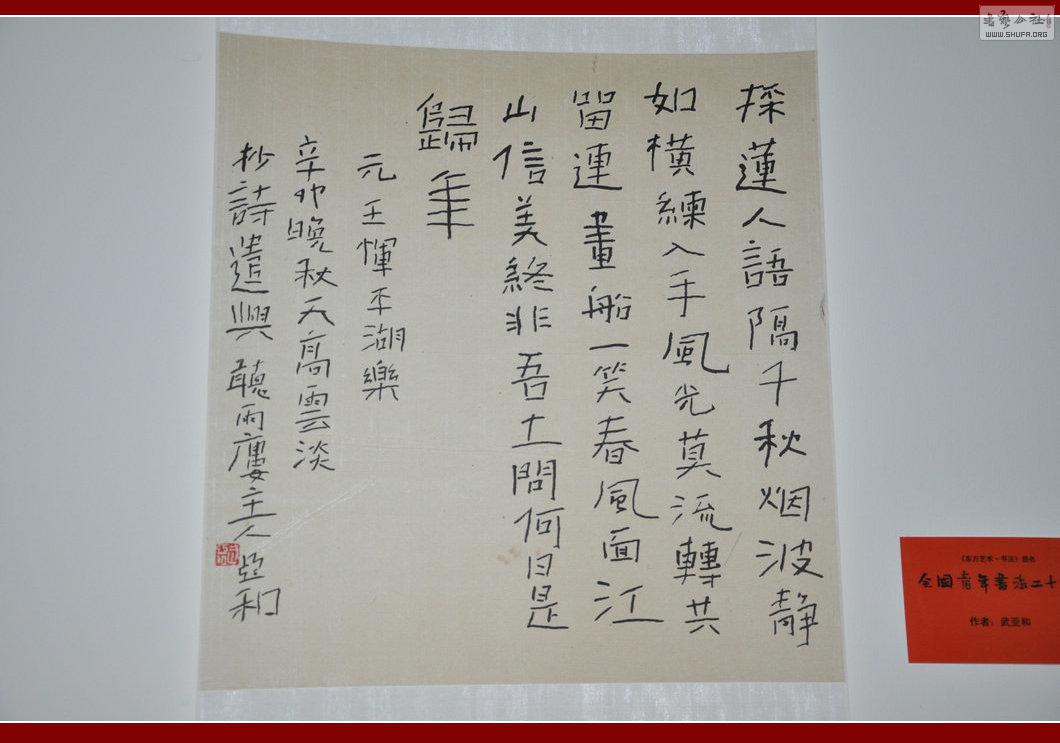 採蓮人語隔千秋烟波靜
如橫練入手風光莫流轉共
留連畫船一笑春風面江
山信美終非吾土問何日是
歸年
元王惲平湖樂
辛卯晚秋天高雲淡
抄詩遣興聽雨廔主人亞和
《东方艺术·书法》提名
全国青年書法二十
作者：武亚和
WWW.SHUFA.ORG